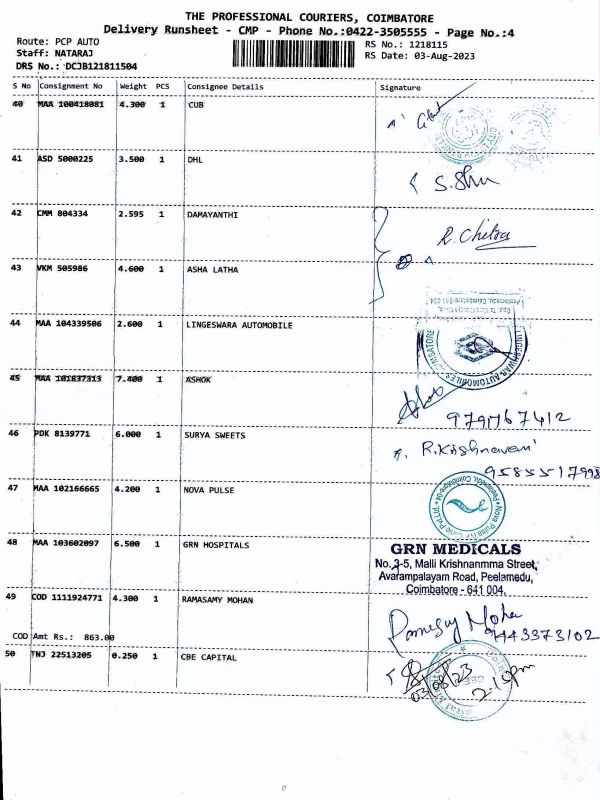 THE PROFESSIONAL COURIERS, COIMBATORE
Delivery Runsheet - CMP - Phone No.:0422-3505555 - Page No.:4
Route: PCP AUTO
Staff: NATARAJ
DRS No.: DCJB121811504
RS No.: 1218115
RS Date: 03-Aug-2023
S No Consignment No Weight PCS Consignee Details Signature
40 MAA 100418081 4.300 1 CUB
41 ASD 5000225 3.500 1 DHL
S.Shu
42 CMM 804334 2.595 1 DAMAYANTHI
R.Chitra
43 VKM 505986 4.600 1 ASHA LATHA
44 MAA 104339506 2.600 1 LINGESWARA AUTOMOBILE
Peelamedu, Coimbatore-641 004.
LINGESHWAR AUTOMOBILES COIMBATORE
45 MAA 101837313 7.400 1 ASHOK
9791767412
46 PDK 8139771 6.000 1 SURYA SWEETS
R.Krishnaveni
9585517998
47 MAA 102166665 4.200 1 NOVA PULSE
Nova Pulse IVF Clinic Pvt Ltd
Peelamedu, Coimbatore-04
48 MAA 103602097 6.500 1 GRN HOSPITALS
GRN MEDICALS
No. 3-5, Malli Krishnanmma Street,
Avarampalayam Road, Peelamedu,
Coimbatore - 641 004.
49 COD 1111924771 4.300 1 RAMASAMY MOHAN
Ramasay Mohan
9443373102
COD Amt Rs.: 863.00
50 TNJ 22513205 0.250 1 CBE CAPITAL
03/08/23
2.15pm